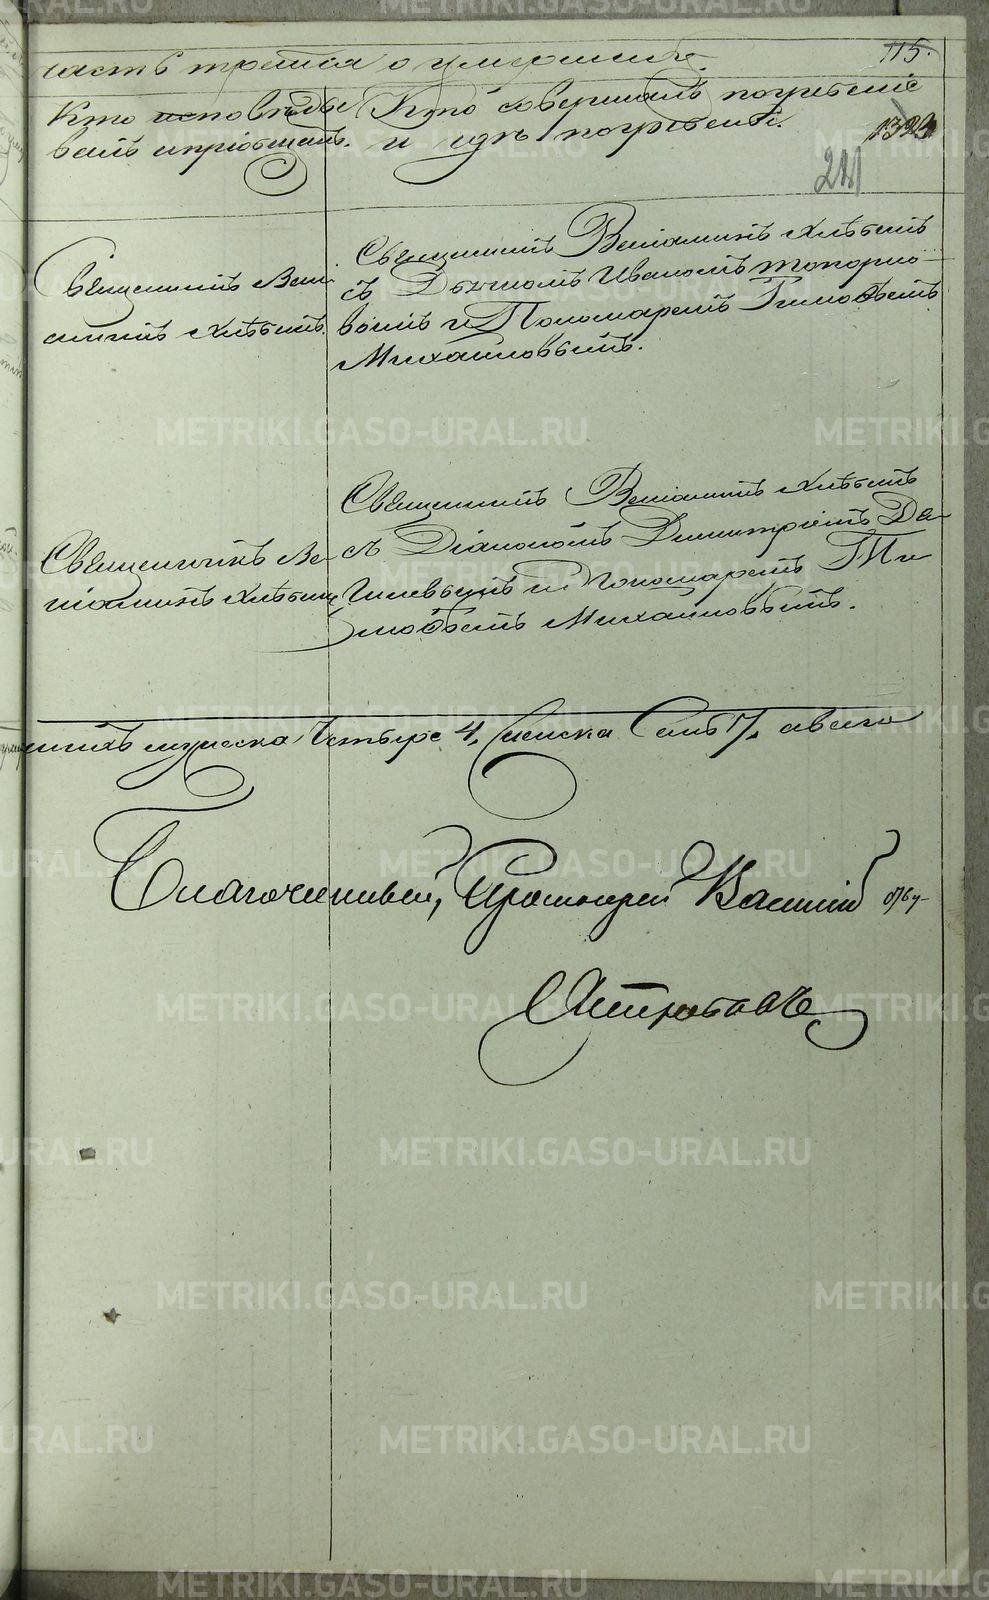 115.
часть третья о умершихъ.
Кто исповѣды
валъ и пріобщалъ.
Кто совершалъ погребеніе
и гдѣ погребены.
1324
211
Священникъ Вені
аминъ Хлѣбинъ.
Священникъ Веніаминъ Хлѣбинъ
съ Дьячкомъ Иваномъ Топорко-
вымъ и Пономаремъ Тимоѳеемъ
Михайловымъ.
Священникъ Ве
ніаминъ Хлѣбинъ
Священникъ Веніаминъ Хлѣбинъ
съ Діакономъ Димитріемъ
и Пономаремъ Ти
моѳеемъ Михайловымъ.
мужеска Четыре 4, женска Семь 7, а всего
Благочинный, Протоіерей
METRIKI.GASO-URAL.RU